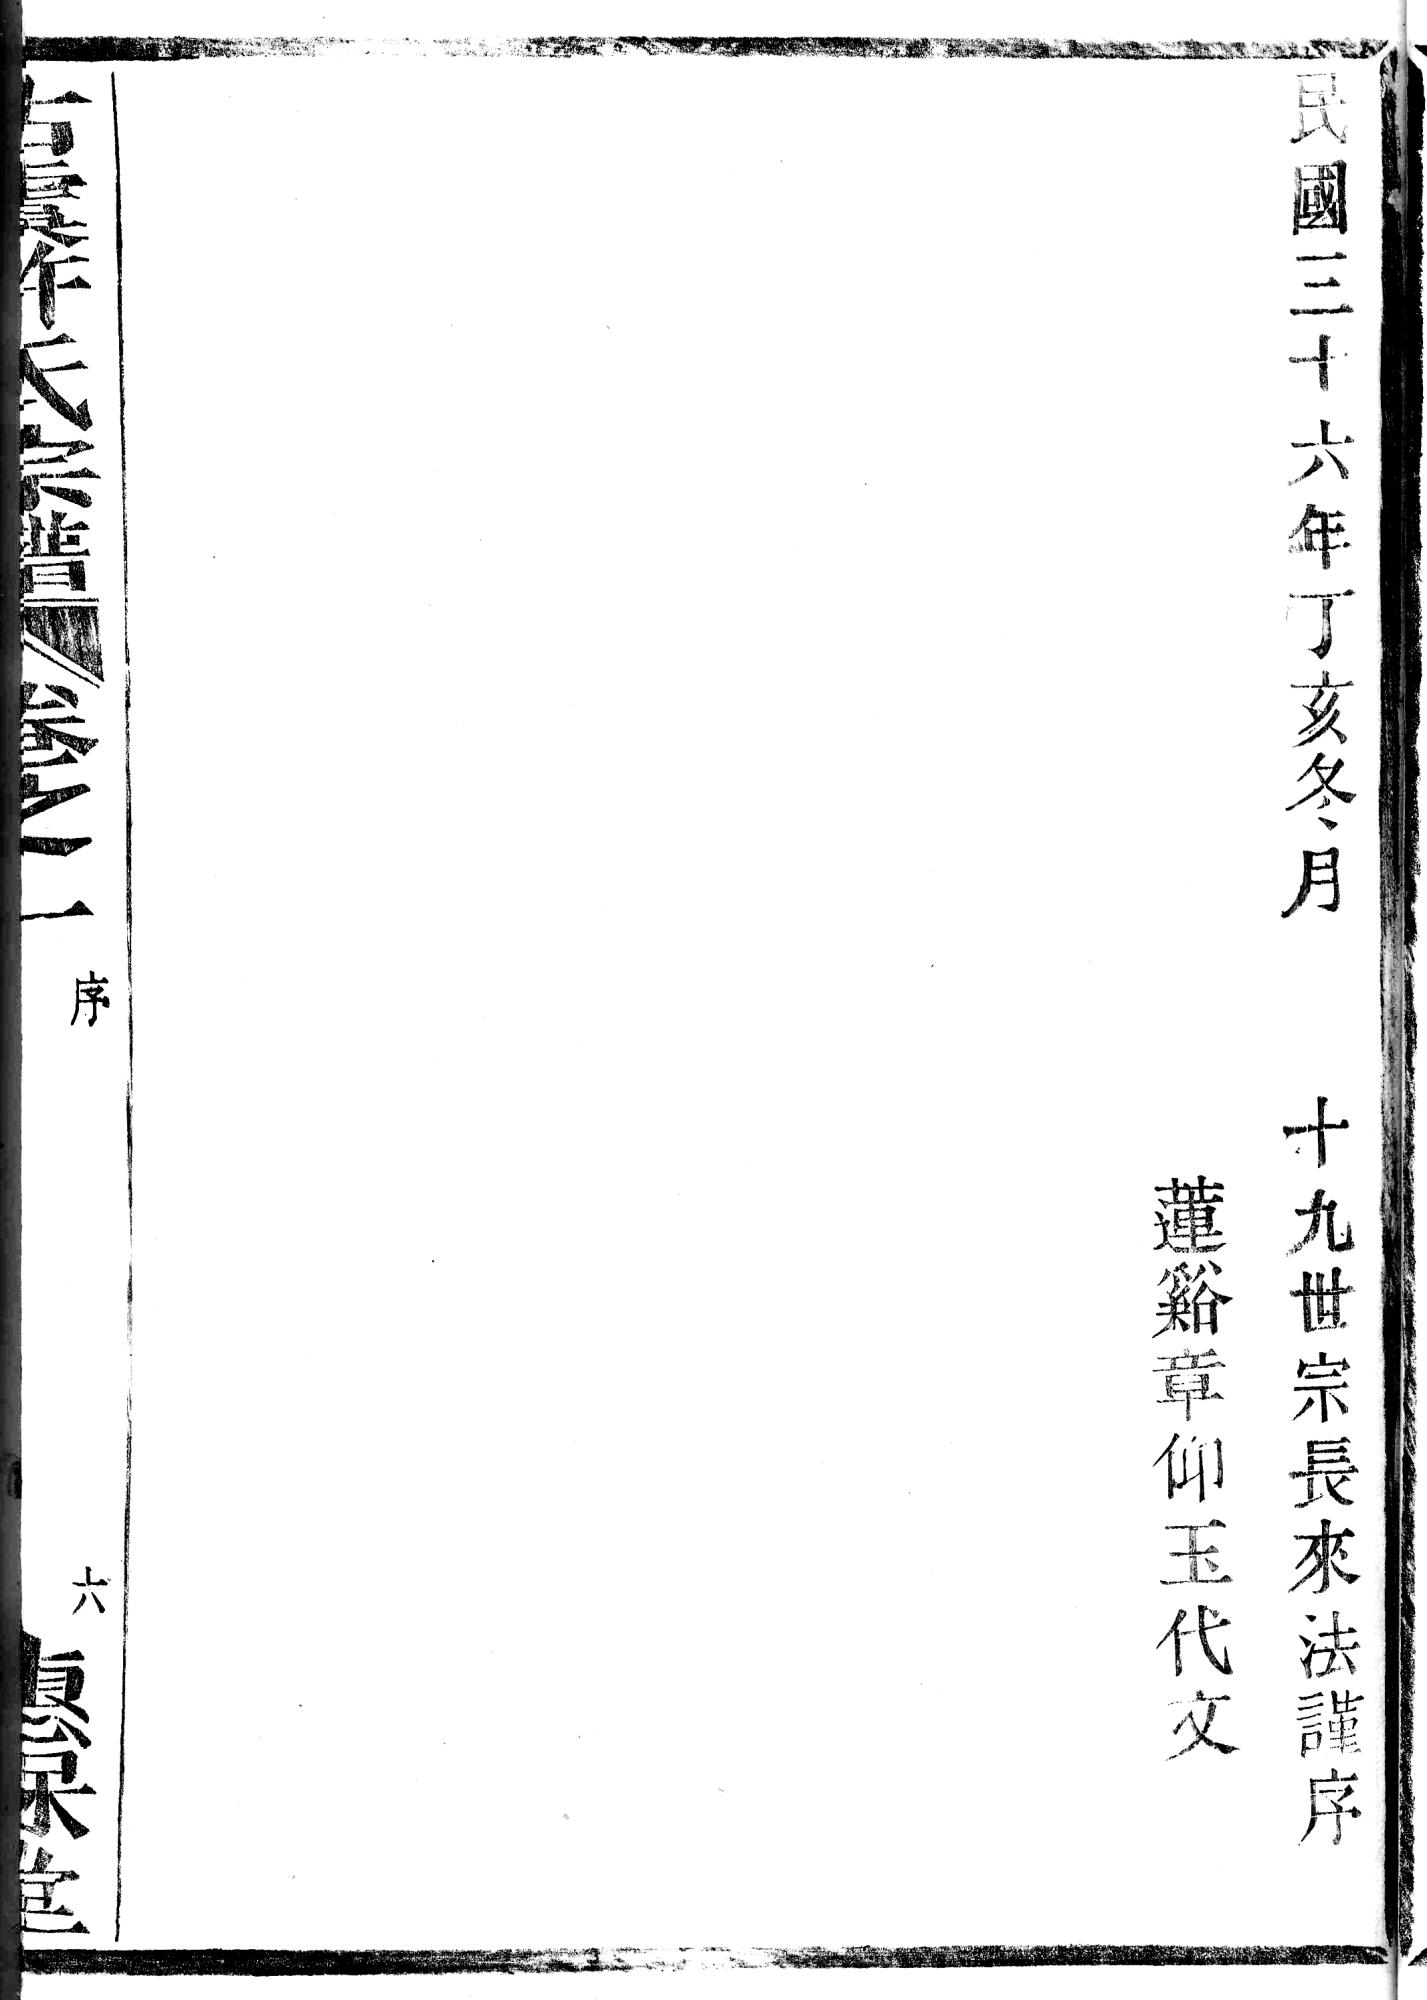 民國三十六年丁亥冬月　十九世宗長來法謹序
蓮谿章仰玉代文
氏宗譜　卷之一　序　六　堂